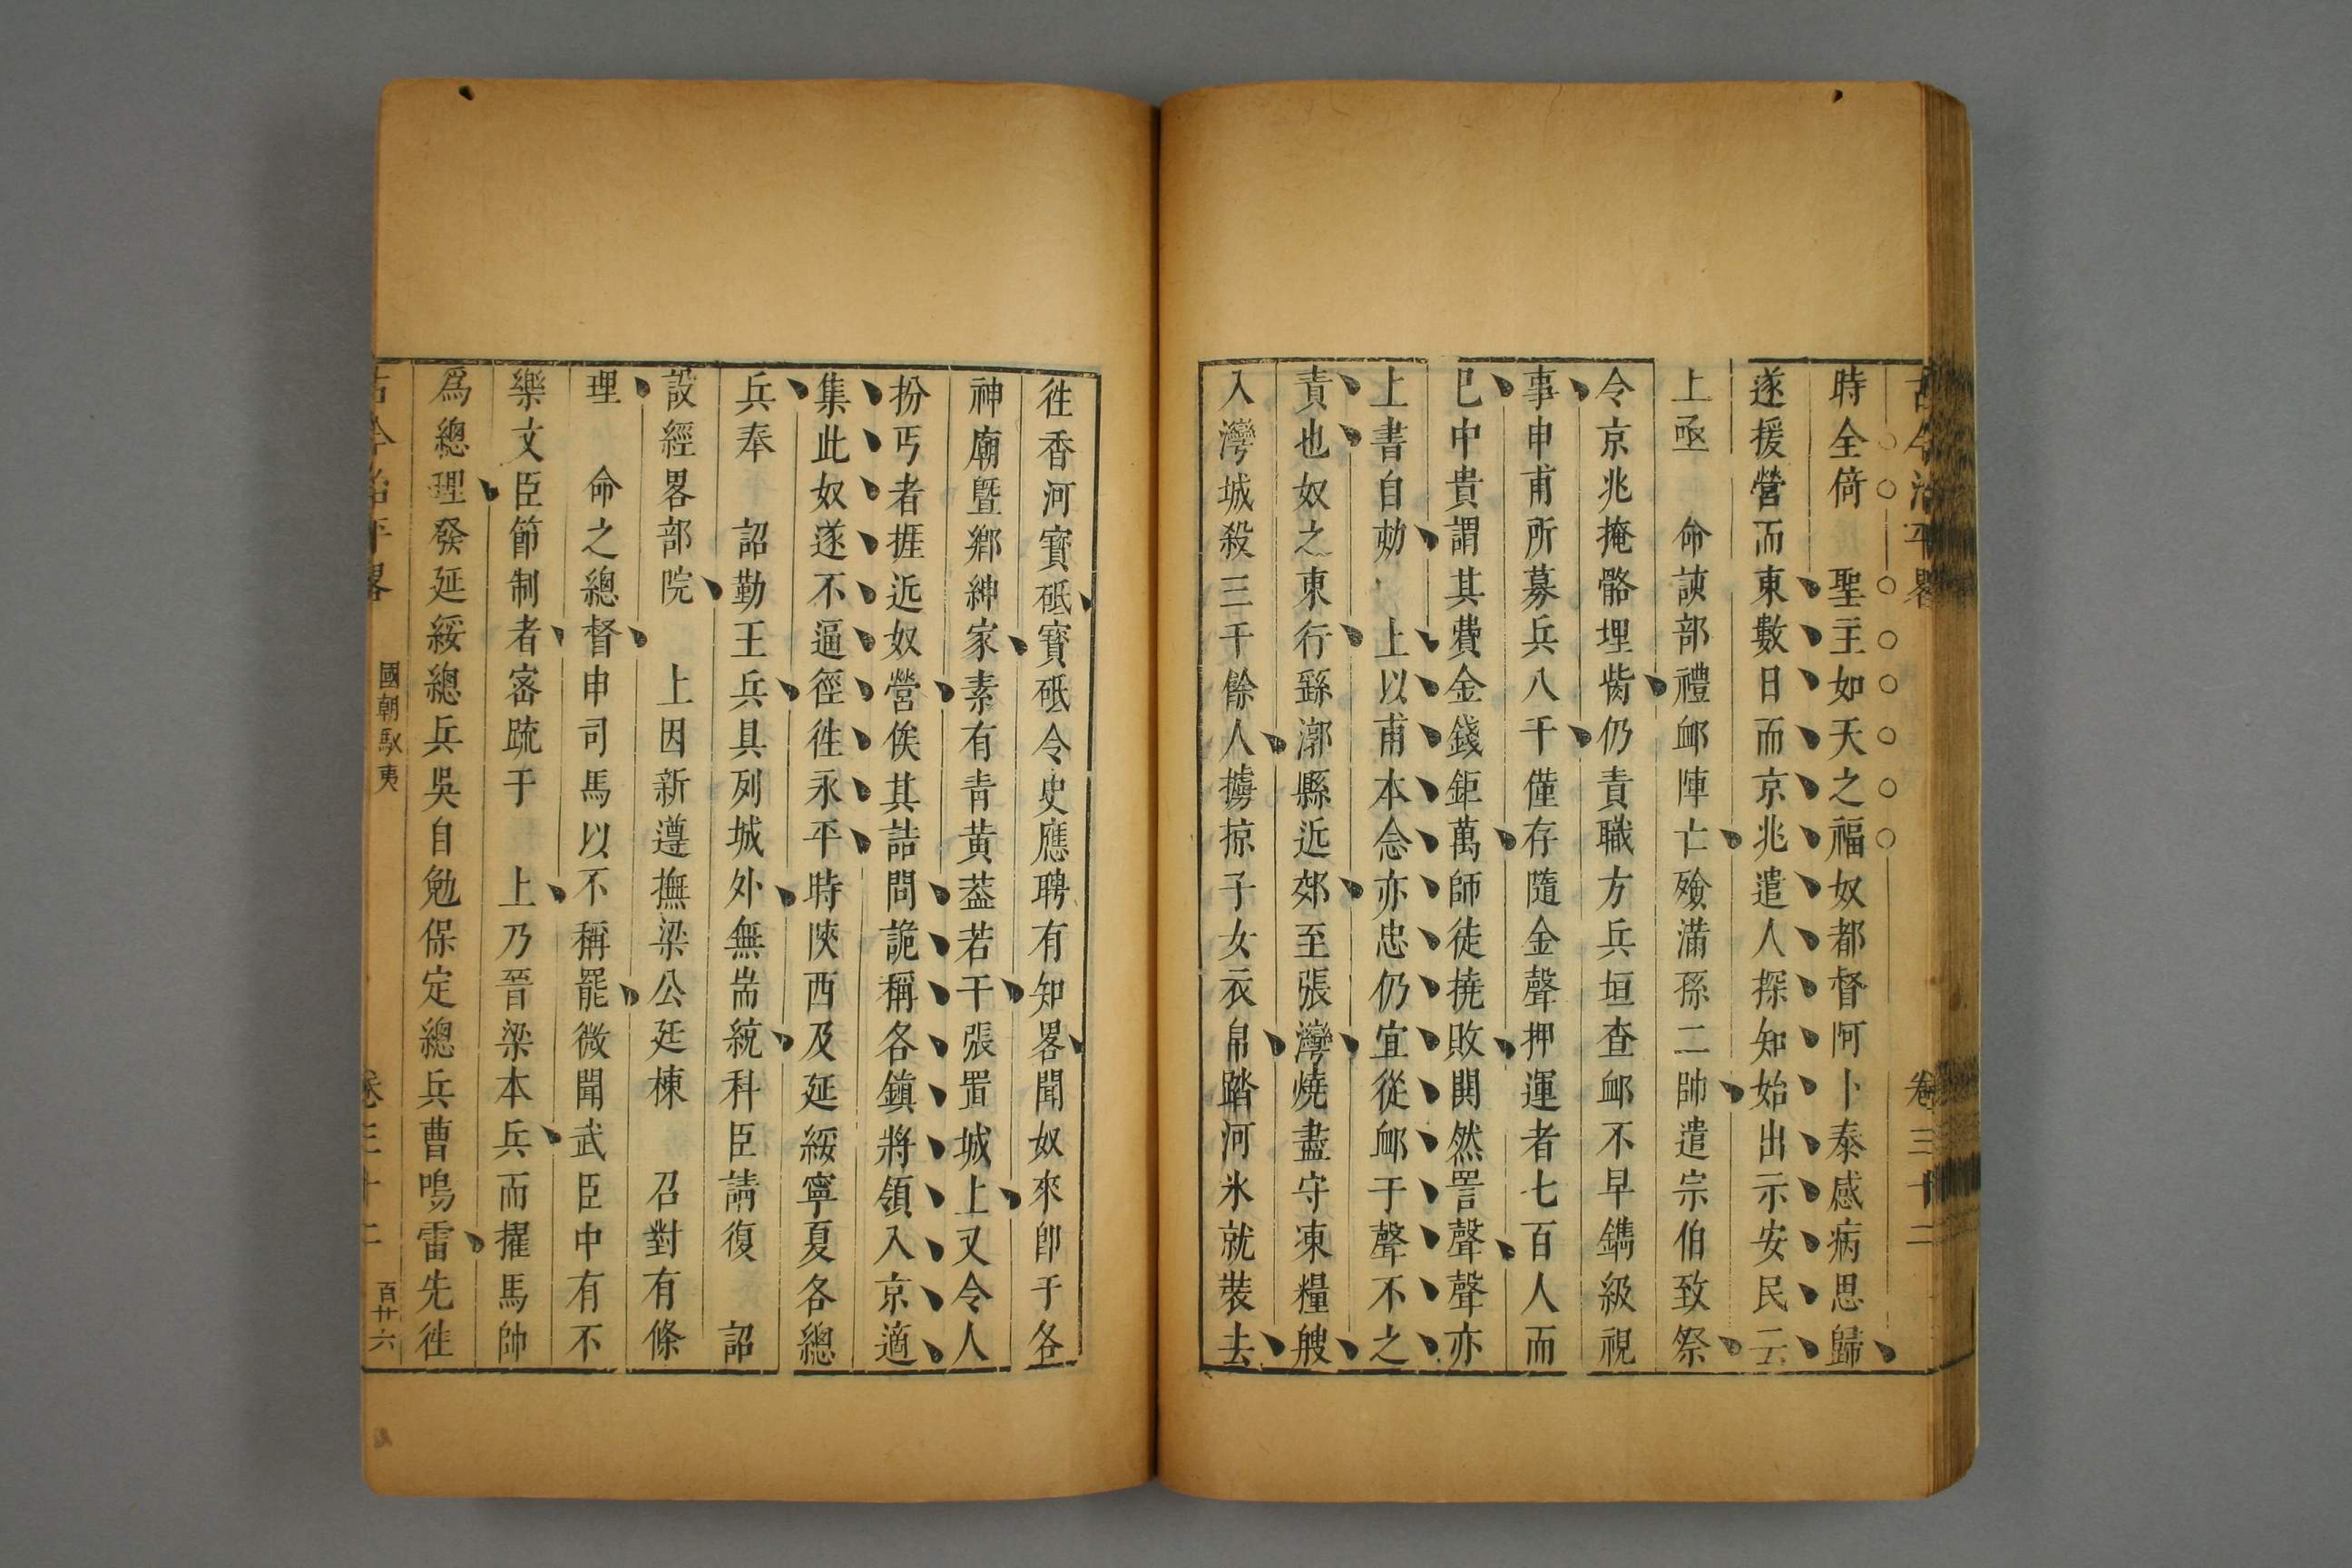 古今治平畧 卷三十二
時全倚 聖主如天之福奴都督阿卜泰感病思歸
遂援營而東數日而京兆遣人探知始出示安民云
上亟 命諛部禮卹陣亡殮滿孫二帥遣宗伯致祭
令京兆掩骼埋胔仍責職方兵垣查卹不早鐫級視
事申甫所募兵八千僅存隨金聲押運者七百人而
已中貴謂其費金錢鉅萬師徒撓敗鬨然詈聲聲亦
上書自劾 上以甫本念亦忠仍宜從卹于聲不之
責也奴之東行繇漷縣近郊至張灣燒盡守凍糧艘
入灣城殺三千餘人擄掠子女衣帛踏河氷就裝去
徃香河寳砥寳砥令史應聘有知畧聞奴來卽于各
神廟曁鄉紳家素有青黄葢若干張置城上又令人
扮丐者捱近奴營俟其詰問詭稱各鎮將領入京適
集此奴遂不逼徑徃永平時陝西及延綏寧夏各總
兵奉 詔勤王兵具列城外無耑統科臣請復 詔
設經畧部院 上因新遵撫梁公廷棟 召對有條
理 命之總督申司馬以不稱罷微聞武臣中有不
樂文臣節制者宻䟽于 上乃晉梁本兵而擢馬帥
爲總理發延綏總兵吳自勉保定總兵曹鳴雷先徃
古今治平畧 國朝馭夷 卷三十二 百廿六